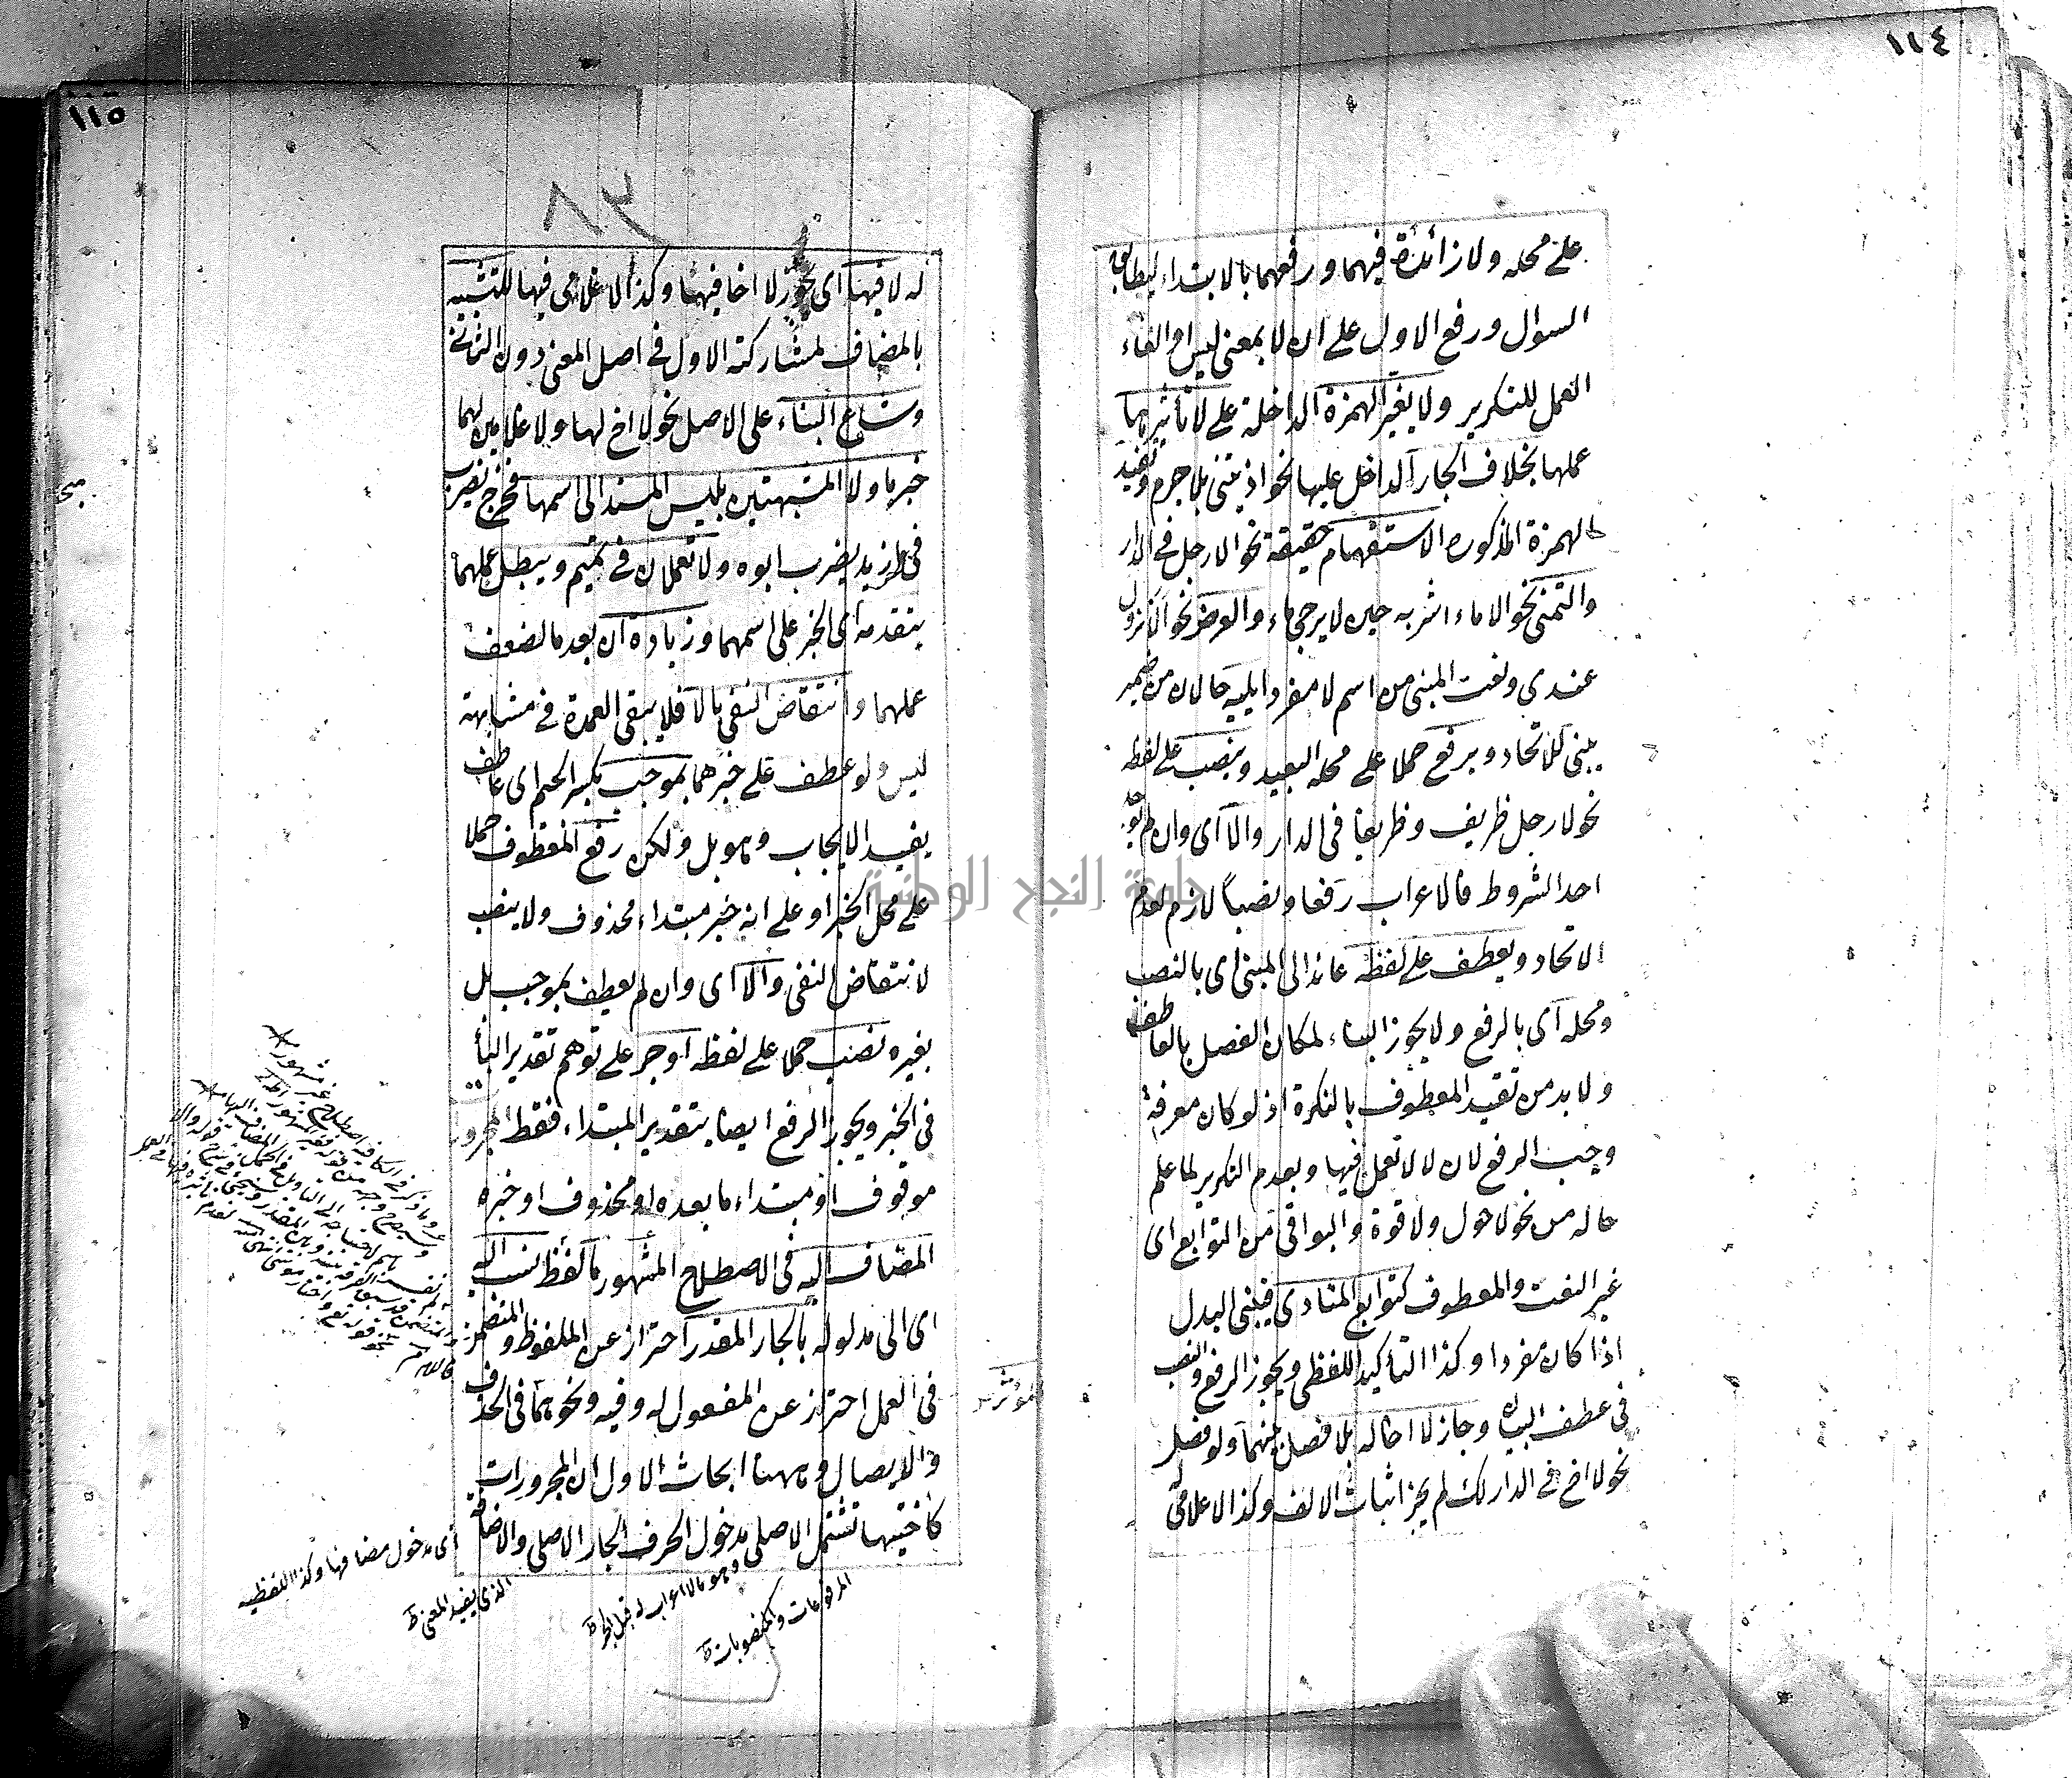 ١١٤
على محله ولا زائدة فيهما ورفعهما بالابتداء ليطابق
السوال ورفع الاول على ان لا بمعنى ليس او الغاء
العمل للتكرير ولا يغير الهمزة الداخلة على لا تأثيرها
عملها بخلاف الجار الداخل عليها نحو اذيتنى بلا جرم وتفيد
الهمزة المذكورة الاستفهام حقيقة نحو الا رجل فى الدار
والتمنى نحو الا ماء اشربه حين لا يرجى ماء والعرض نحو الا نزول
عندى ونعت المبنى من اسم لا مفردا يليه حالان من ضمير
يبنى للاتحاد ويرفع حملا على محله البعيد وينصب على لفظه
نحو لا رجل ظريف وظريفا فى الدار والا اى وان لم يوجد
احد الشروط فالاعراب رفعا ونصبا لازم لعدم
الاتحاد ويعطف على لفظه عائد الى المبنى اى بالنصب
ومحله اى بالرفع ولا يجوز البناء لمكان الفصل بالعاطف
ولا بد من تقييد المعطوف بالنكرة اذ لو كان معرفة
وجب الرفع لان لا لا تعمل فيها وبعدم التكرير لما علم
حاله من نحو لا حول ولا قوة والبواقى من التوابع اى
غير النعت والمعطوف كتوابع المنادى فيبنى البدل
اذا كان مفردا وكذا التأكيد اللفظى ويجوز الرفع والنصب
فى عطف البيان وجاز لا اخا له بلا فصل بينهما ولو فصل
نحو لا اخ فى الدار لك لم يجز اثبات الالف وكذا لا غلامى له
١١٥
٨٣
له لا فيها اى يجوز لا اخا فيها وكذا لا غلامى فيها للتشبيه
بالمضاف لمشاركته الاول فى اصل المعنى دون الثانى
وشاع البناء على الاصل نحو لا اخ لها ولا غلامين لهما
خبر ما ولا المشبهتين بليس المسند الى اسمها فخرج يضرب
فى ما زيد يضرب ابوه ولا تعملان فى تميم ويبطل عملهما
بتقدمه اى الخبر على اسمهما وزيادة ان بعد ما لضعف
عملهما وانتقاض النفى بالا فلا يبقى العمدة فى مشابهة
ليس ولو عطف على خبرهما بموجب بكسر الجيم اى عاطف
يفيد الايجاب وهو بل ولكن رفع المعطوف حملا
على محل الخبر او على انه خبر مبتداء محذوف ولا ينصب
لانتقاض النفى والا اى وان لم يعطف بموجب بل
بغيره نصب حملا على لفظه او جر على توهم تقدير الباء
فى الخبر ويجوز الرفع ايضا بتقدير المبتداء فقط المجرور
موقوف او مبتداء ما بعده او محذوف او خبره
المضاف اليه فى الاصطلاح المشهور ما لفظ نسب اليه
اى الى مدلوله بالجار المقدر احتراز عن الملفوظ والمتضمن
فى العمل احتراز عن المفعول له وفيه ونحوهما فى الحذف
والايصال وههنا ابحاث الاول ان المجرورات
كاختيها تشتمل الاصلى مدخول الحرف الجار الاصلى والاضافة
اى مدخول مضافها وكذا اللفظيه
الذى يفيد المعنى
المرفوعات والمنصوبات
جامعة النجاح الوطنية